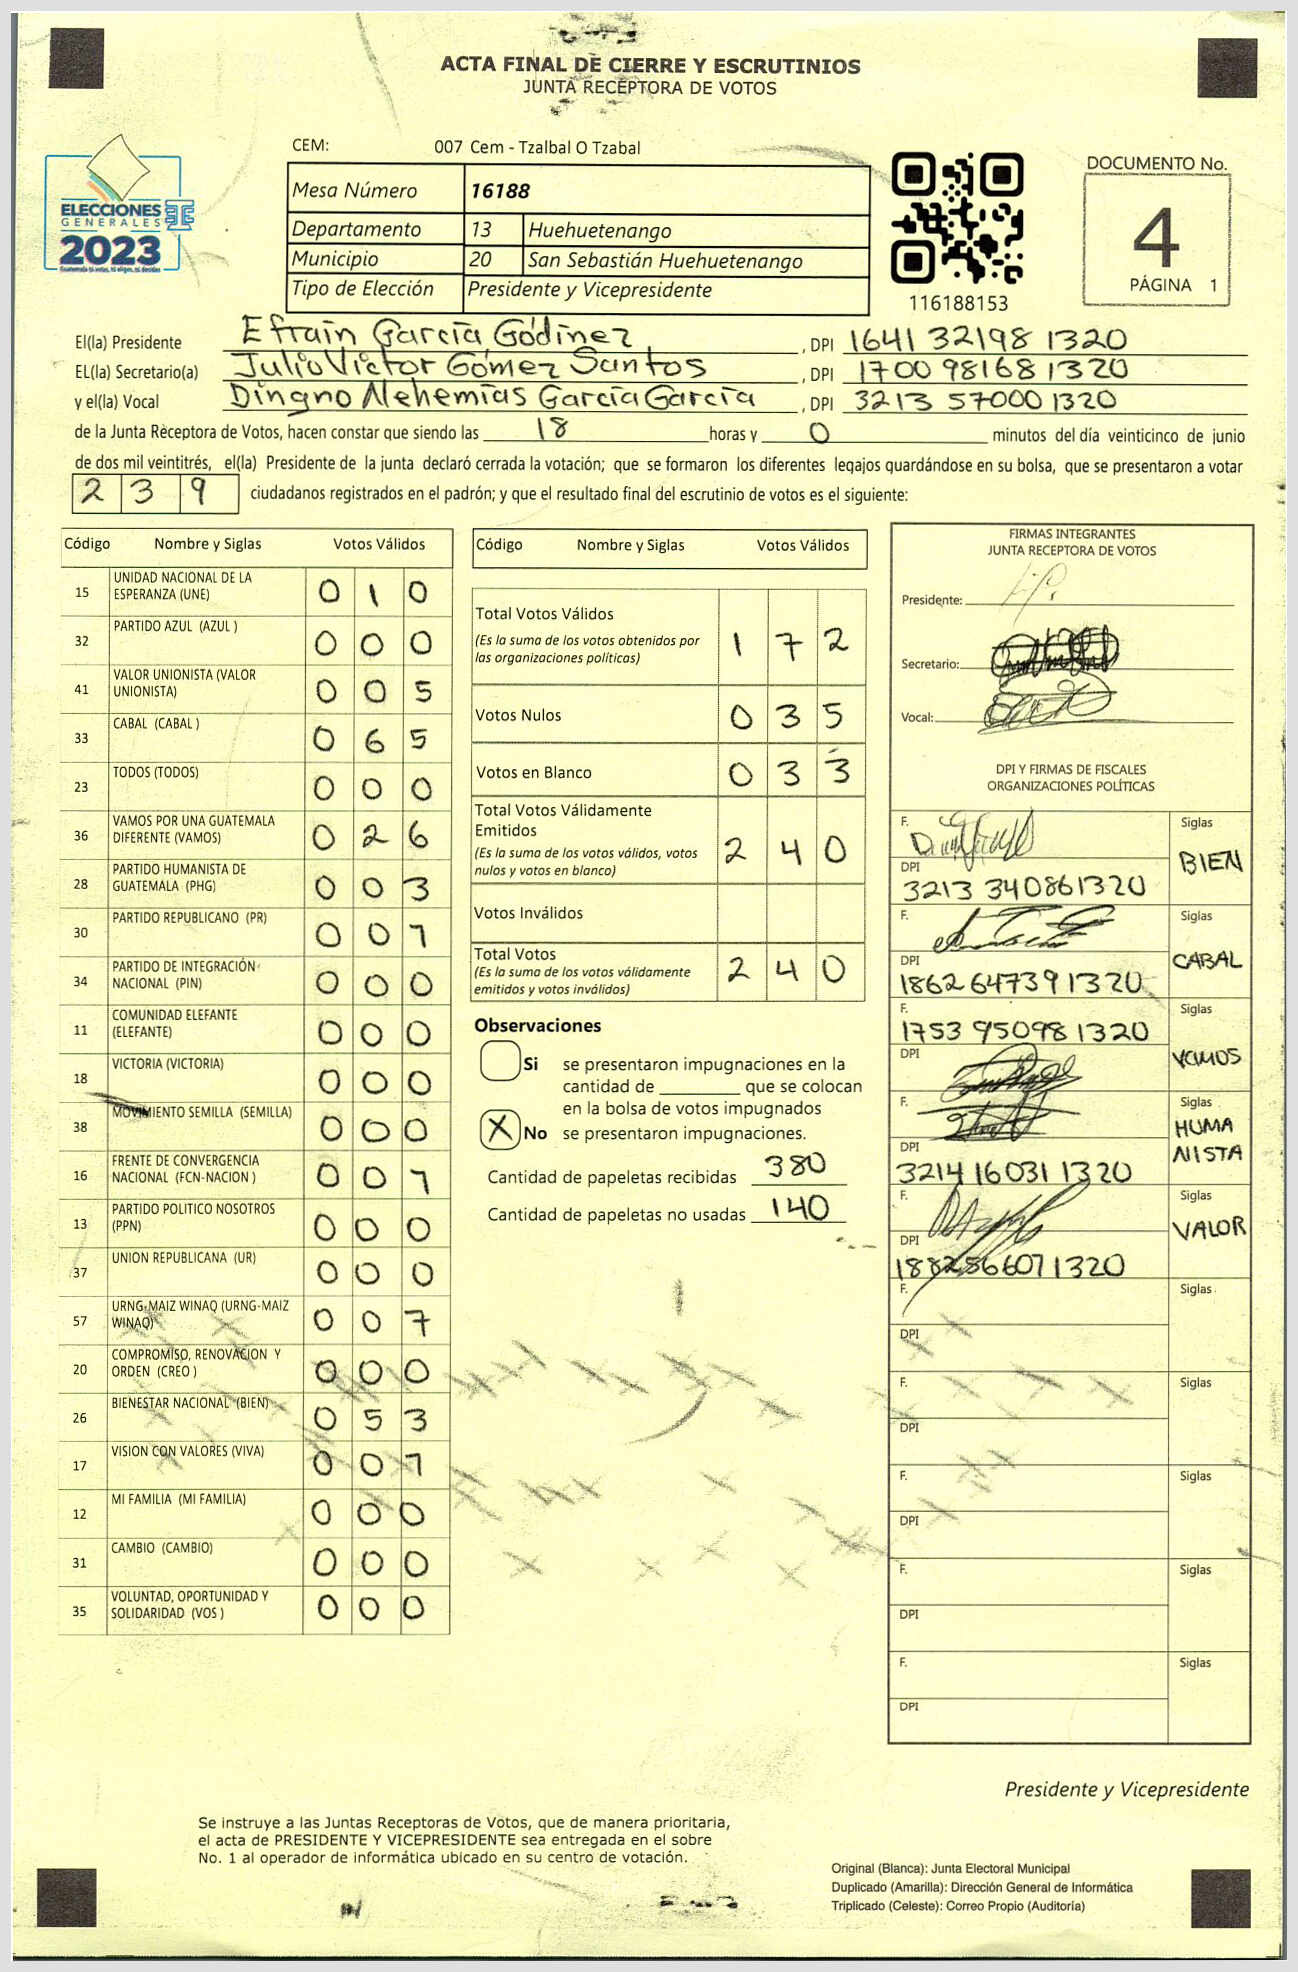 ACTA FINAL DE CIERRE Y ESCRUTINIOS
JUNTA RECEPTORA DE VOTOS
CEM: 007 Cem - Tzalbal O Tzabal
Mesa Número 16188
Departamento 13 Huehuetenango
Municipio 20 San Sebastián Huehuetenango
Tipo de Elección Presidente y Vicepresidente
ELECCIONES
GENERALES
2023
Guatemala tú votas, tú eliges, tú decides
116188153
DOCUMENTO No.
4
PÁGINA 1
El(la) Presidente Efraín García Gódinez , DPI 1641 32198 1320
EL(la) Secretario(a) Julio Victor Gómez Santos , DPI 1700 98168 1320
y el(la) Vocal Dingno Nehemías García García , DPI 3213 57000 1320
de la Junta Receptora de Votos, hacen constar que siendo las 18 horas y 0 minutos del día veinticinco de junio
de dos mil veintitrés, el(la) Presidente de la junta declaró cerrada la votación; que se formaron los diferentes legajos guardándose en su bolsa, que se presentaron a votar
239 ciudadanos registrados en el padrón; y que el resultado final del escrutinio de votos es el siguiente:
Código Nombre y Siglas Votos Válidos
15 UNIDAD NACIONAL DE LA ESPERANZA (UNE) 0 1 0
32 PARTIDO AZUL (AZUL ) 0 0 0
41 VALOR UNIONISTA (VALOR UNIONISTA) 0 0 5
33 CABAL (CABAL ) 0 6 5
23 TODOS (TODOS) 0 0 0
36 VAMOS POR UNA GUATEMALA DIFERENTE (VAMOS) 0 2 6
28 PARTIDO HUMANISTA DE GUATEMALA (PHG) 0 0 3
30 PARTIDO REPUBLICANO (PR) 0 0 1
34 PARTIDO DE INTEGRACIÓN NACIONAL (PIN) 0 0 0
11 COMUNIDAD ELEFANTE (ELEFANTE) 0 0 0
18 VICTORIA (VICTORIA) 0 0 0
38 MOVIMIENTO SEMILLA (SEMILLA) 0 0 0
16 FRENTE DE CONVERGENCIA NACIONAL (FCN-NACION ) 0 0 1
13 PARTIDO POLITICO NOSOTROS (PPN) 0 0 0
37 UNION REPUBLICANA (UR) 0 0 0
57 URNG-MAIZ WINAQ (URNG-MAIZ WINAQ) 0 0 7
20 COMPROMISO, RENOVACION Y ORDEN (CREO ) 0 0 0
26 BIENESTAR NACIONAL (BIEN) 0 5 3
17 VISION CON VALORES (VIVA) 0 0 1
12 MI FAMILIA (MI FAMILIA) 0 0 0
31 CAMBIO (CAMBIO) 0 0 0
35 VOLUNTAD, OPORTUNIDAD Y SOLIDARIDAD (VOS ) 0 0 0
Código Nombre y Siglas Votos Válidos
Total Votos Válidos 1 7 2
(Es la suma de los votos obtenidos por
las organizaciones políticas)
Votos Nulos 0 3 5
Votos en Blanco 0 3 3
Total Votos Válidamente
Emitidos 2 4 0
(Es la suma de los votos válidos, votos
nulos y votos en blanco)
Votos Inválidos
Total Votos 2 4 0
(Es la suma de los votos válidamente
emitidos y votos inválidos)
Observaciones
Si se presentaron impugnaciones en la
cantidad de ________ que se colocan
en la bolsa de votos impugnados
X No se presentaron impugnaciones.
Cantidad de papeletas recibidas 380
Cantidad de papeletas no usadas 140
FIRMAS INTEGRANTES
JUNTA RECEPTORA DE VOTOS
Presidente:
Secretario:
Vocal:
DPI Y FIRMAS DE FISCALES
ORGANIZACIONES POLÍTICAS
F. Siglas
BIEN
DPI
3213 34086 1320
F. Siglas
CABAL
DPI
1862 64739 1320
F. Siglas
1753 95098 1320
DPI VAMOS
F. Siglas
HUMA
NISTA
DPI
3214 16031 1320
F. Siglas
VALOR
DPI
1882566071320
F. Siglas
DPI
F. Siglas
DPI
F. Siglas
DPI
F. Siglas
DPI
F. Siglas
DPI
Presidente y Vicepresidente
Se instruye a las Juntas Receptoras de Votos, que de manera prioritaria,
el acta de PRESIDENTE Y VICEPRESIDENTE sea entregada en el sobre
No. 1 al operador de informática ubicado en su centro de votación.
Original (Blanca): Junta Electoral Municipal
Duplicado (Amarilla): Dirección General de Informática
Triplicado (Celeste): Correo Propio (Auditoría)